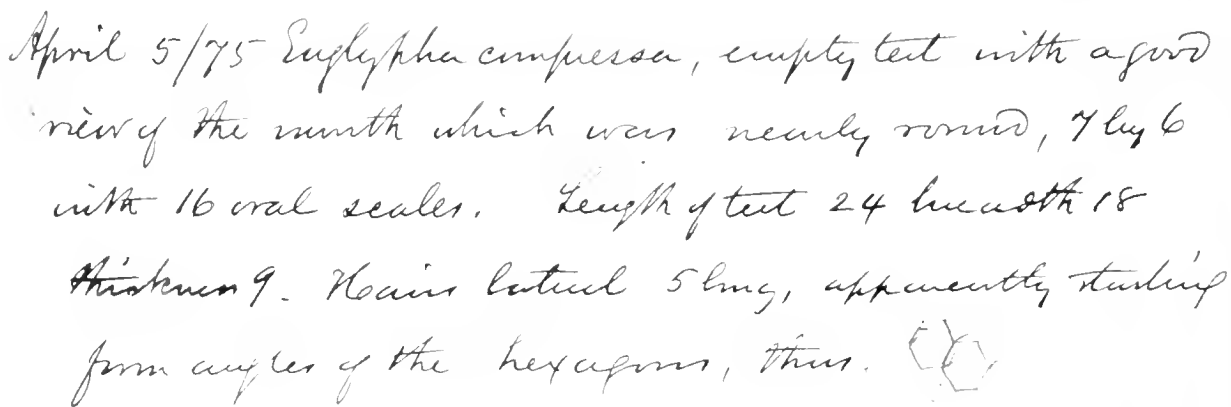 April 5/75 Euglypha compressa, empty test with a good
view of the mouth which was nearly round, 7 by 6
with 16 oral scales. Length of test 24 breadth 18
thickness 9. Hairs lateral 5 long, apparently starting
from angles of the hexagons, thus.